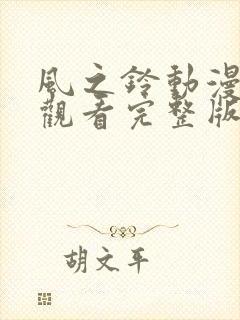 風之鈴動漫
觀看完整版
胡文平